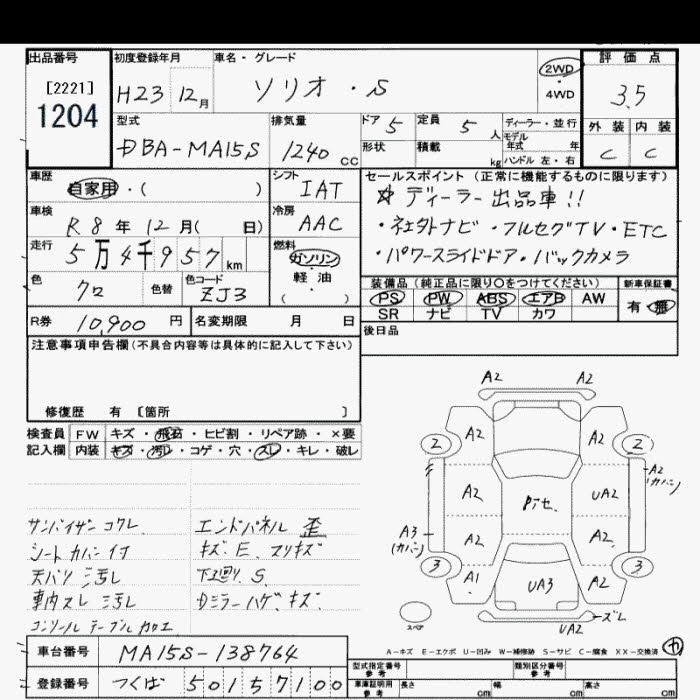 出品番号 初度登録年月 車名・グレード 2WD ・ 4WD 評価点
[2221] 1204 H23 12月 ソリオ・S 3.5
型式 排気量 ドア 5 定員 5人 ディーラー・並行 外装 内装
DBA-MA15S 1240cc 形状 積載 kg モデル年式 年 ハンドル 左・右 C C
車歴 シフト セールスポイント (正常に機能するものに限ります)
自家用・( ) IAT ☆ディーラー出品車!!
車検 R8年12月( 日) 冷房 AAC ・社外ナビ・フルセグTV・ETC
走行 5万4千957km 燃料 ガソリン ・パワースライドドア・バックカメラ
軽・油 ( )
色 クロ 色替 色コード ZJ3 装備品 (純正品に限り○をつけてください) 新車保証書
PS PW ABS エアB AW 有・無
R券 10,900円 名変期限 月 日 SR ナビ TV カワ
注意事項申告欄(不具合内容等は具体的に記入して下さい) 後日品
修復歴 有 〔箇所 〕
検査員 FW キズ・飛石・ヒビ割・リペア跡・×要
記入欄 内装 キズ・汚レ・コゲ・穴・スレ・キレ・破レ
A2 A2
2 A2 A2 2
A2 (カバー)
A2 UA2
A3 (カバー) A2 A2
3 A1 UA3 A2 3
スペア ズレ
UA2
サンバイザーコワレ エンドパネル 歪
シートカバー付 キズ.E.スリキズ
天バリ汚レ 下廻り.S
車内スレ汚レ Dミラーハゲ.キズ
コンソールテーブルカロエ
A-キズ E-エクボ U-凹み W-補修跡 S-サビ C-腐食 XX-交換済
車台番号 MA15S-138764
型式指定番号 参考 類別区分番号 参考
登録番号 つくば 501 5 7100
車庫証明用 参考 長さ cm 幅 cm 高さ cm